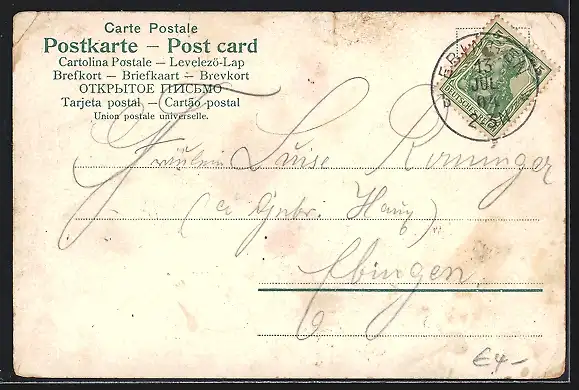 Carte Postale
Postkarte – Post card
Cartolina Postale – Levelező-Lap
Brefkort – Briefkaart – Brevkort
ОТКРЫТОЕ ПИСЬМО
Tarjeta postal – Cartão postal
Union postale universelle.
EBINGEN
13
JUL
04
DEUTSCHES REICH
Fräulein Luise Romminger
(Gebr. Haux)
Ebingen
€4-